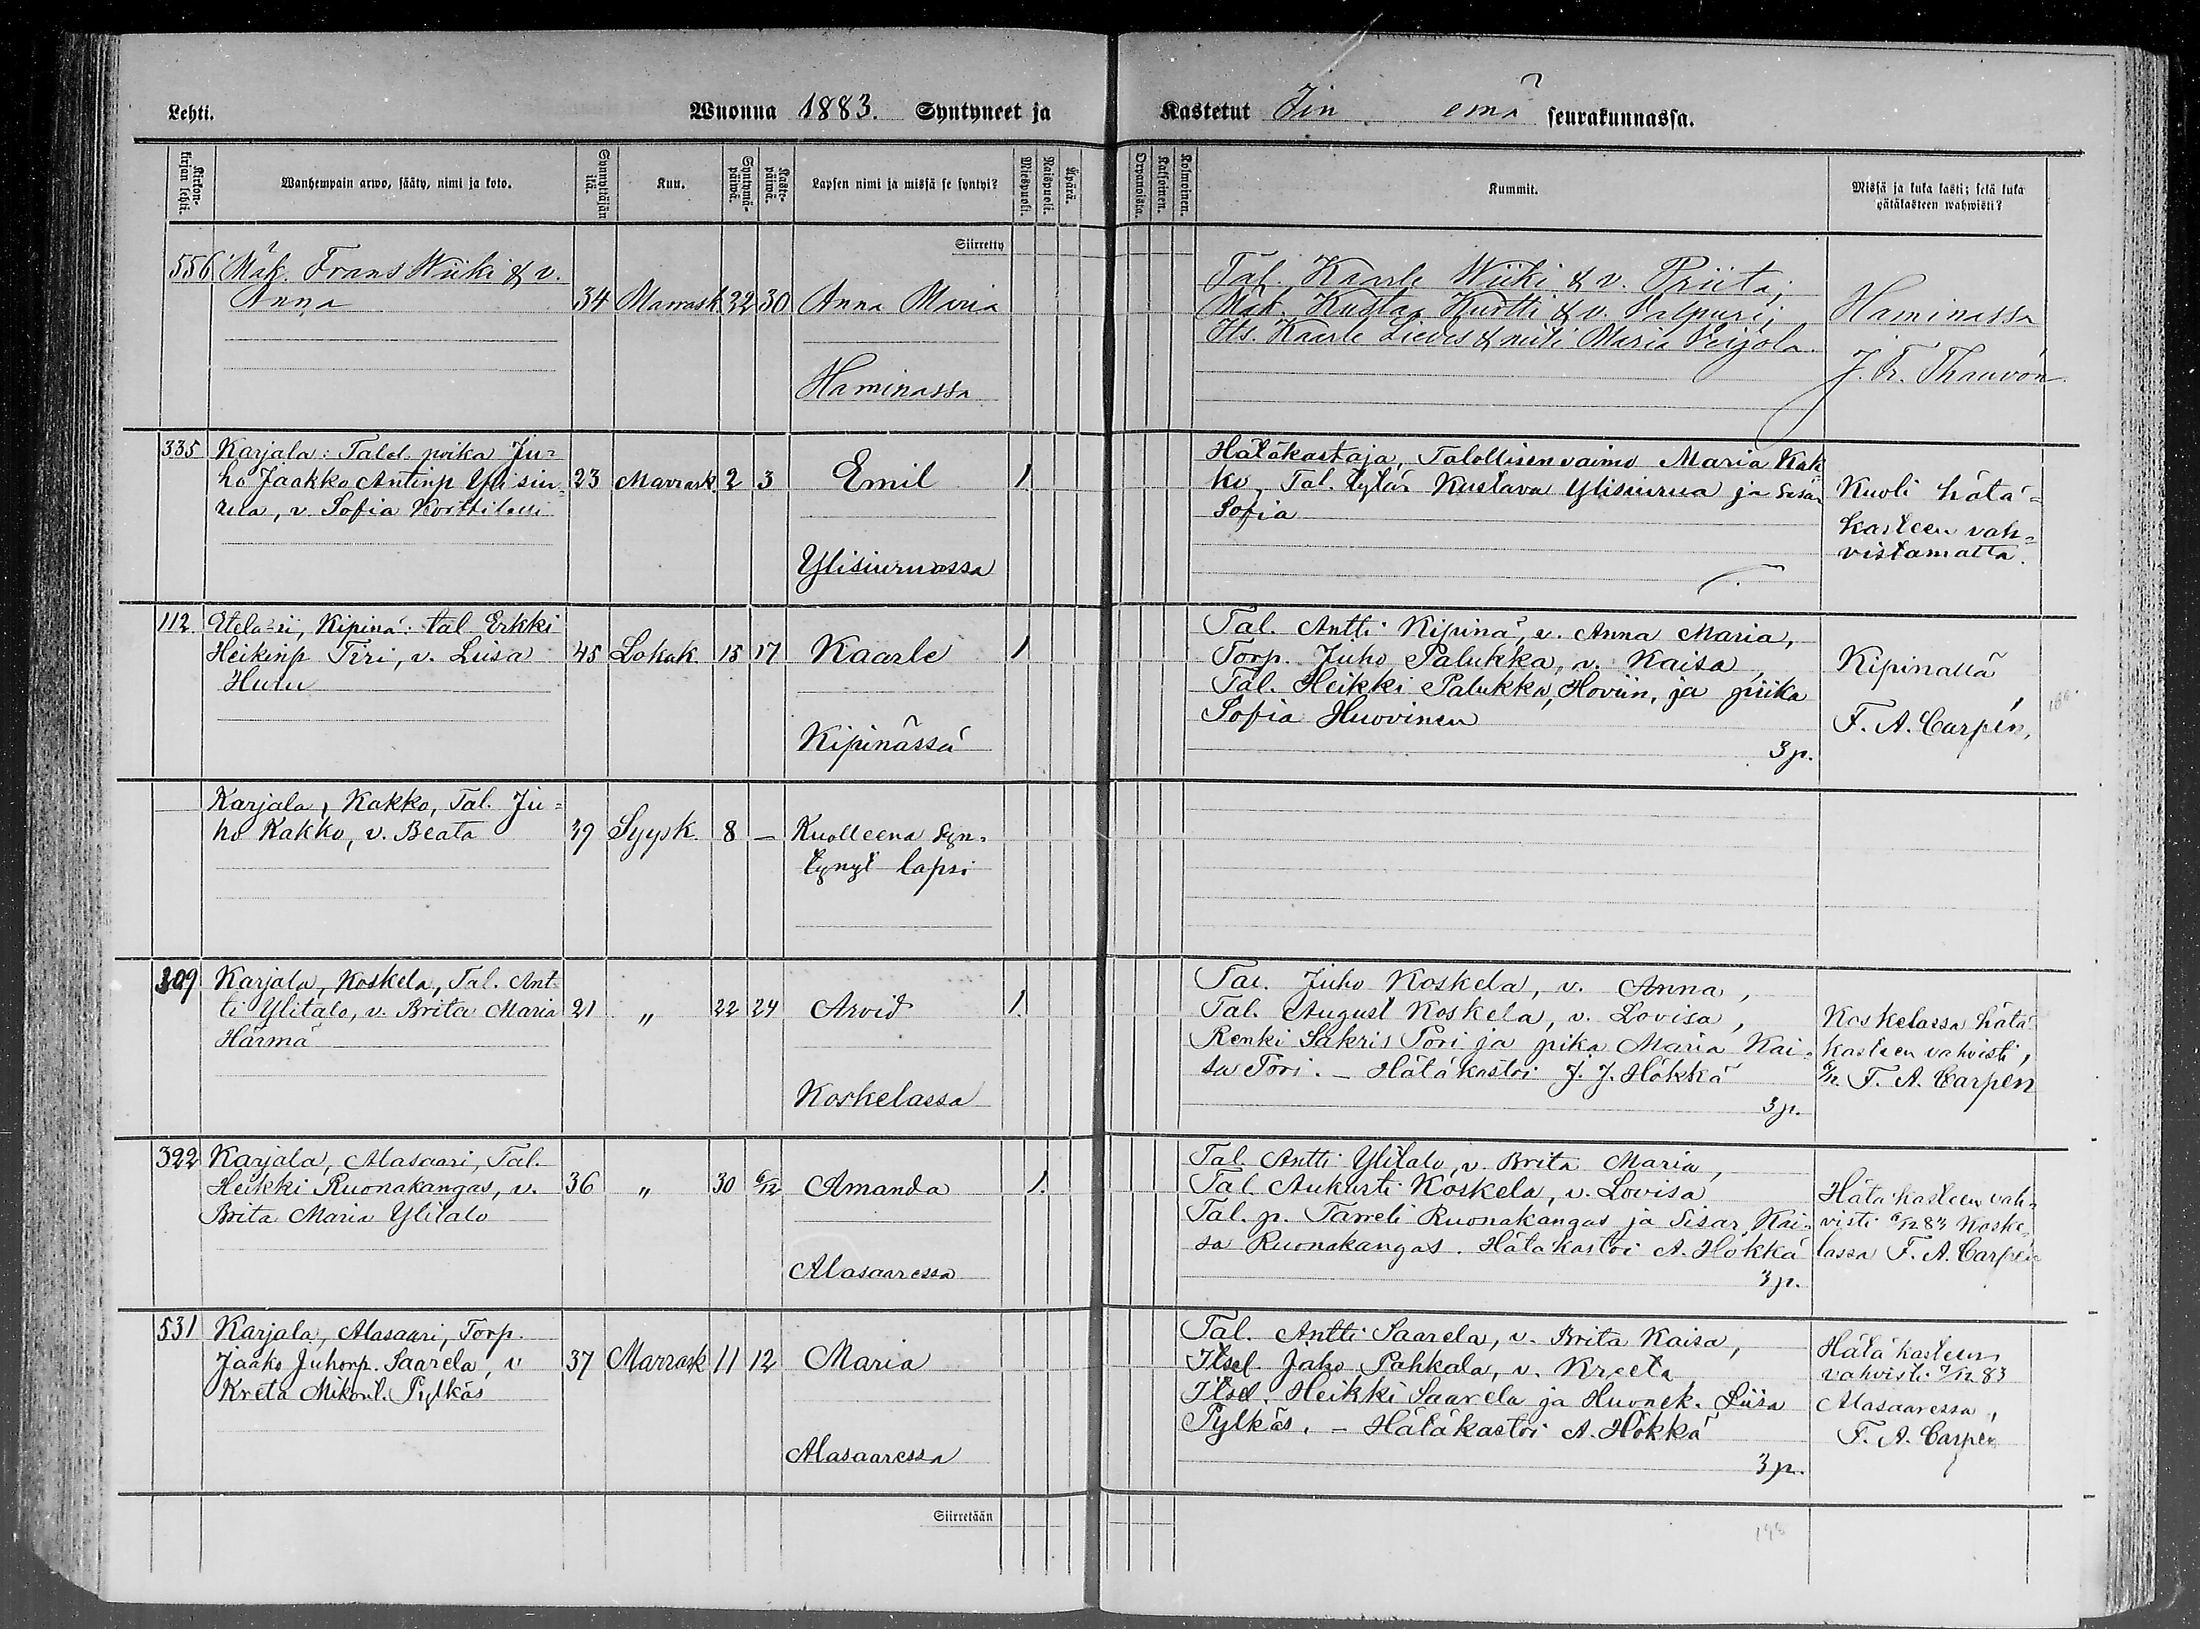 Lehti. Wuonna 1883. Syntyneet ja Kastetut Iin emä seurakunnassa.
Wanhempain arwo, sääty, nimi ja koto.
Kuu.
Syntymä-päiwä.
Kaste-päiwä.
Lapsen nimi ja missä se syntyi?
Miespuoli.
Naispuoli.
Äpärä.
Kaksoinen.
Kolmoinen.
Kummit.
Missä ja kuka kasti; sekä kuka hätäkasteen wahwisti?
Siirretty
556 Mäk. Frans Wiiki & v.
Anna 34 Marrask. 22 30 Anna Maria
Haminassa
Tal. Kaarle Wiiki & v. Priita;
Mäk. Kusta Kurtti & v. Valpuri;
Its. Kaarle Liedes & neiti Maria Veijola.
Haminassa
J. Fr. Thauvón
335 Karjala: Talol. poika Ju=
ho Jaakko Antinp Ylisiu=
rua, v. Sofia Korttilum
23 Marrask. 2 3 Emil 1.
Ylisiuruassa
Hätäkastaja, Talollisen vaimo Maria Kak
ko, Tal. tytär Kustava Ylisiurua ja sisar
Sofia
Kuoli hätä=
kasteen vah=
vistamatta.
112 Etelä-ii, Kipinä: tal Erkki
Heikinp Tiri, v. Liisa
Hutu
45 Lokak. 15 17 Kaarle 1
Kipinässä
Tal. Antti Kipinä, v. Anna Maria,
Torp. Juho Palukka, v. Kaisa,
Tal. Heikki Palukka, Hoviin, ja piika
Sofia Huovinen
3 p.
Kipinällä
F. A. Carpén,
Karjala, Kakko, Tal. Ju=
ho Kakko, v. Beata
39 Syysk. 8 — Kuolleena syn=
tynyt lapsi
309 Karjala, Koskela, Tal. Ant
ti Ylitalo, v. Brita Maria
Härmä
21 " 22 24 Arvid 1.
Koskelassa
Tal. Juho Koskela, v. Anna,
Tal. August Koskela, v. Lovisa,
Renki Sakris Pori ja piika Maria Kai=
sa Tori. — Hätäkastoi J. J. Hökkä
3 p.
Koskelassa hätä
kasteen vahvisti,
F. A. Carpén
322 Karjala, Alasaari, Tal.
Heikki Ruonakangas, v.
Brita Maria Ylitalo
36 " 30 6/12 Amanda 1.
Alasaaressa
Tal. Antti Ylitalo, v. Brita Maria,
Tal. Aukusti Koskela, v. Lovisa
Tal. p. Taneli Ruonakangas ja Sisar Kai=
sa Ruonakangas. Hätäkastoi A. Hökkä
3 p.
Hätäkasteen vah=
visti 6/12 83 Koske
lassa F. A. Carpén
531 Karjala, Alasaari, Torp.
Jaako Juhonp. Saarela, v
Kreta Mikont. Pylkäs
37 Marrask 11 12 Maria
Alasaaressa
Tal. Antti Saarela, v. Brita Kaisa,
Itsel. Juho Pahkala, v. Kreeta
Itsel. Heikki Saarela ja Huonek. Liisa
Pylkäs. — Hätäkastoi A. Hökkä
3 p.
Hätäkasteen
vahvisti 83
Alasaaressa,
F. A. Carpén
Siirretään